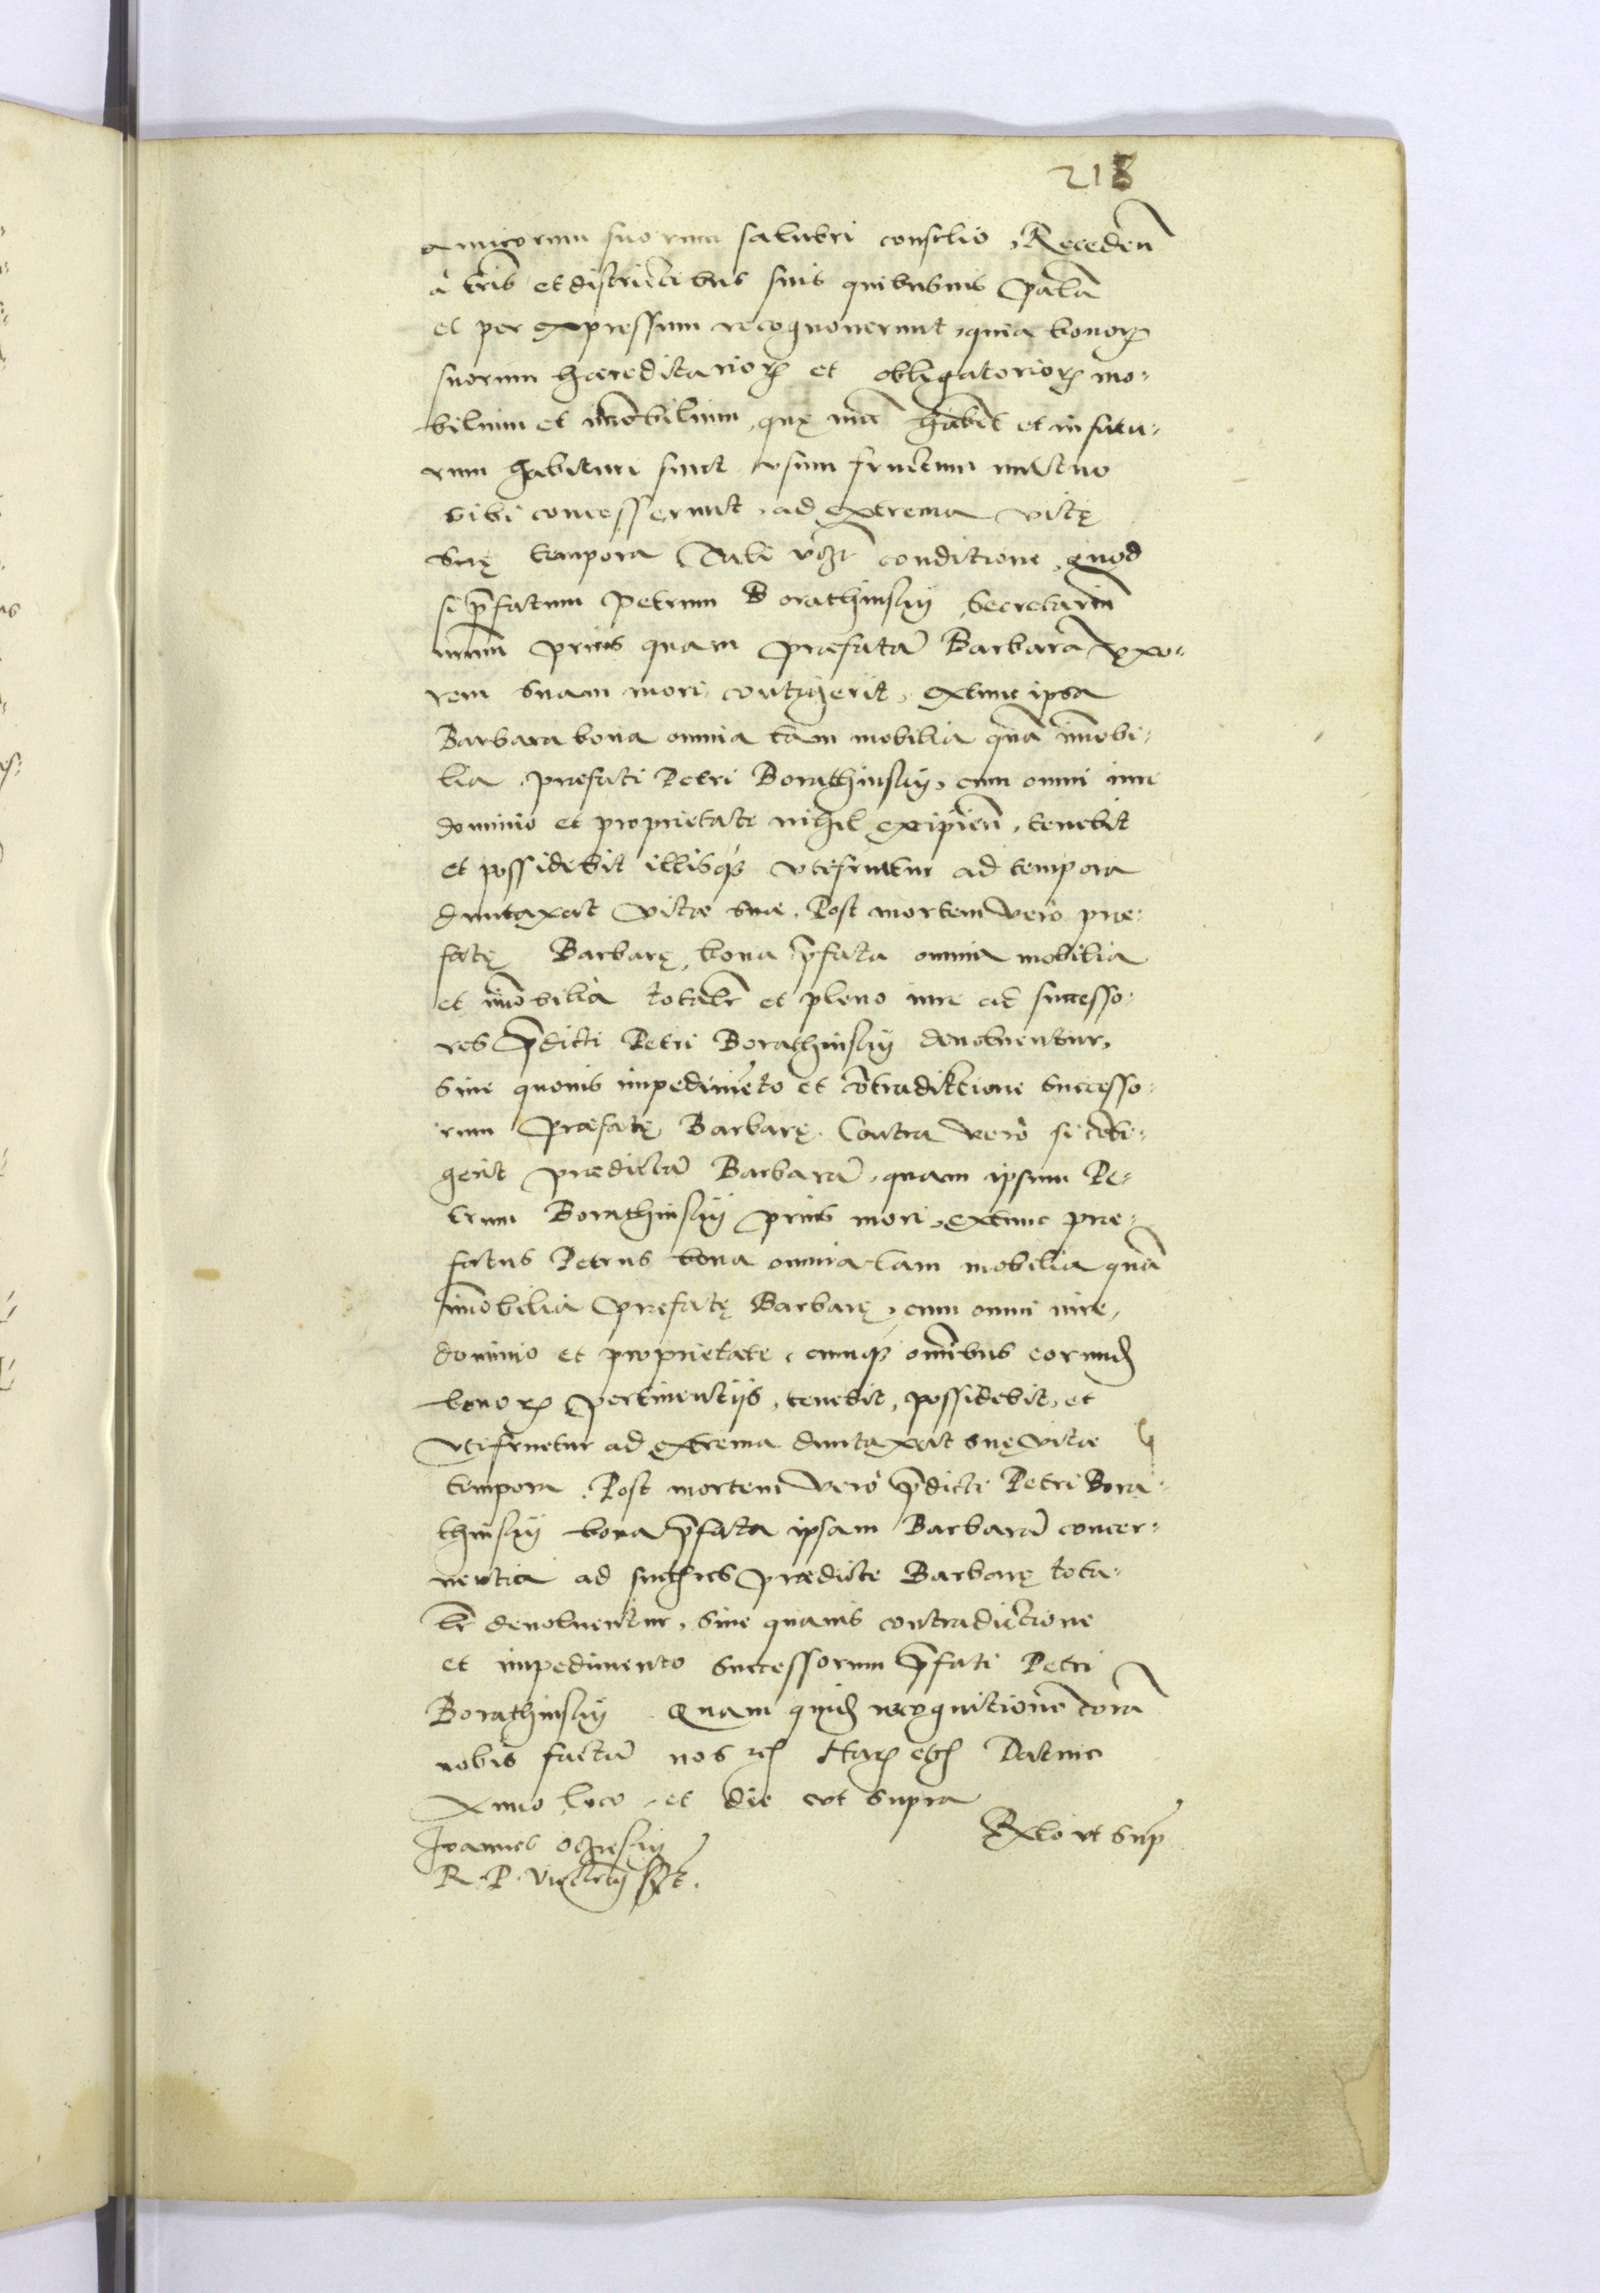 218
amicorum suorum salubri consilio, Recedeñ
à terris et districtibus suis quibusuis Palã
et per expressum recognouerunt, quia bonoꝝ
suorum hæreditarioꝝ et obligatorioꝝ mo-
bilium et im̃obilium, quę nũc habẽt et in futu-
rum habituri sunt vsum fructum mutuo
sibi concesserunt, ad extrema vitę
suę tempora Tali conditione, quod
si p̃fatum Petrum Borathinsky Secretariũ
nr̃um prius quam præfatã Barbarã vxo-
rem suam mori contigerit, extunc ipsa
Barbara bona omnia tam mobilia quã im̃obi-
lia præfati Petri Borathinsky, cum omni iure
dominio et proprietate nihil excipieñ, tenebit
et possidebit illisqꝫ vtifruetur ad tempora
duntaxat vitæ suæ. Post mortem verò præ-
fatę Barbarę, bona p̃fata omnia mobilia
et im̃obilia totalr̃ et pleno iure ad successo-
res p̃dicti Petri Borathinsky deuoluentur,
Sine quouis impedimẽto et cõtradictione successo-
rum præfatę Barbarę. Contra verò si cõti-
gerit prædictã Barbarã, quam ipsum Pe-
trum Borathinsky prius mori, extunc præ-
fatus Petrus bona omnia tam mobilia quã
im̃obilia præfatę Barbarę, cum omni iure,
dominio et proprietate, cumqꝫ om̃ibus eorund
bonoꝝ pertinentijs, tenebit, possidebit, et
vtifruetur ad extrema duntaxat suę vitæ
tempora. Post mortem verò p̃dicti Petri Bora-
thinsky bona p̃fata ipsam Barbarã concer-
nentia ad succ̃res prædicte Barbarę tota-
lr̃ deuoluentur, Sine quauis contradictione
et impedimento successorum p̃fati Petri
Borathinsky. Quam quid recognitionẽ corã
nobis factã nos Harꝝ Datum
Anno, loco, et die vt supra
Joannes Ocziesky
R. P. Vicecancell̃ sspt.
Rel̃o vt sup̃